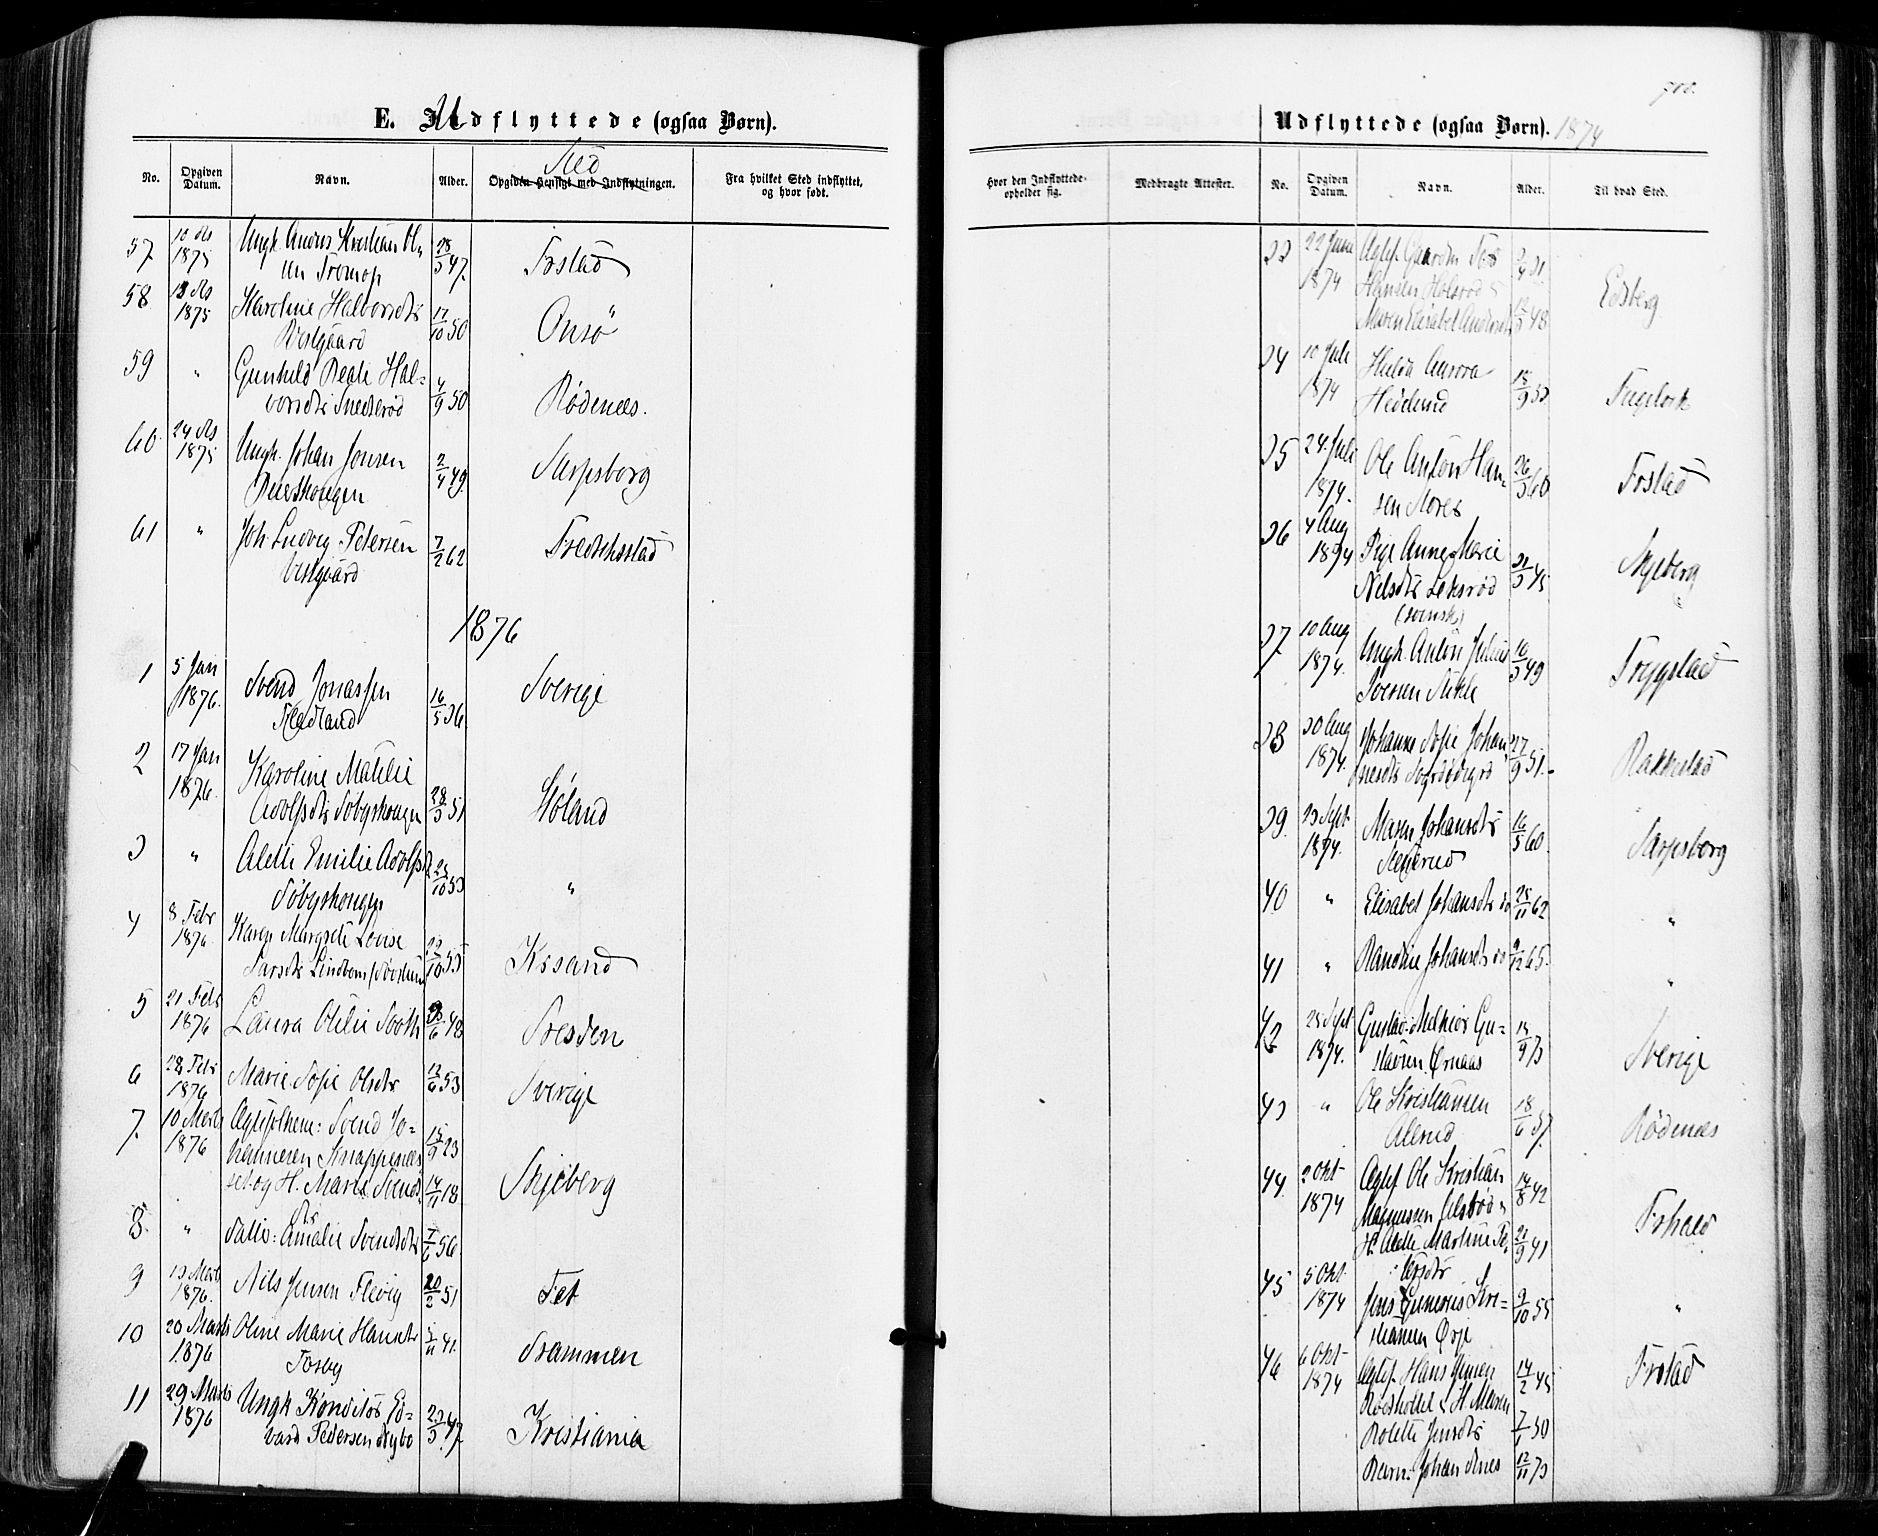 E. Udflyttede (ogsaa Børn).
No. Opgiven Datum. Navn. Alder. Sted Opgiven Hensigt med Indflytningen. Fra hvilket Sted indflyttet, og hvor født.
57. 10 Ds 1875 Ungk. Anders Kristian Ol-
sen Tromop 28/3 47. Frstad
58. 13 Ds 1875 Karoline Halvorsdtr
Vestgaard 17/10 50 Onsö
59 " Gunhild Beate Hal-
vorsdtr Snedserød 4/9 50 Rødenæs.
60. 24 Ds 1875 Ungk. Johan Jonsen
2/4 49. Sarpsborg
61 " Joh. Ludvig Petersen
Vestgaard 7/2 62 Fredrikstad
1876
1 5 Jan 1876. Svend Jonassen
Flødland 16/5 36. Sverige
2 17 Jan 1876. Karoline Matilde
Adolfsdtr Søbyskougen 28/3 51 Høland
3 " Alette Emilie Adolfsd
Søbyskougen 10 53 "
4 8 Febr 1876 Karen Margrete Lovise
Larsdtr 10 55 Krsand
5 21 Febr 1876 Laura Otilie Sooth 6 48 Dresden
6 28 Febr 1876 Marie Sofie Olsdtr 12/6 53 Sverige
7. 10 Marts 1876 Ægtefolkene: Svend Jo-
hannesen Knappenæs 15/9 23
set. og H. Maria Svends
dtr 14/11 18 Skjeberg
8. " Datter: Amalie Svendsdtr 7/6 56.
9 13 Marts 1876. Nils Jensen Flevig 20/2 51 Fet
10 20 Marts 1876 Oline Marie Hansdtr
Tosby 11 41. Drammen
11 29 Marts 1876 Ungk Konditor Ed-
vard Pedersen Nybo 23/3 47. Kristiania
700.
Udflyttede (ogsaa Børn). 1874
Hvor den Indflyttede opholder sig. Medbragte Attester. No. Opgiven Datum. Navn. Alder. Til hvad Sted.
33 22 Juni 1874 Ægtef. Gaardm
Hansen Holsrød &
Maren Elisabet Andersdtr 12/3 48. Edsberg
34 10 Juli 1874 Hulda Aurora
Hedlund 15/9 53
35 24. Juli 1874. Ole Anton Han-
sen 26/3 60 Frstad
36 4 Aug 1874 Pige Anne Marie
Nilsdtr Leksrød
(svensk) 31/3 45 Skjeberg
37. 10 Aug 1874. Ungk. Anton Julius
Iversen Sikle 16/3 49 Trygstad
38 30 Aug 1874. Johanne Sofie Johan-
nesdtr 27/9 51. Rakkestad
39. 23 Sept. 1874. Maren Johansdtr
16/5 60. Sarpsborg
40 " Elisabet Johansdtr do 25/11 62 "
41 " Randine Johansdtr do 9/12 65. "
42 25 Sept 1874. Gustav Melkior Gu-
stavsen Ørnaas 15/9 73 Sverige
43 " Ole Kristiansen
Allerud 18/6 57. Rødenæs
44. 2 Okt 1874 Ægtef. Ole Kristian
Magnussen Ulsrød &
H. Alette Martine Pe-
tersdtr 14/8 42
21/9 41 Frhald
45 5 Okt 1874 Jens Gunerius Kri-
stiansen Ørje 9/10 55 "
46 6 Okt 1874 Ægtef. Hans Jensen
Rødsholtet & H. Maren
Rolette Jensdtr
Barn: Johan Arnes 14/2 45
7/1 50
12/11 73 Frstad